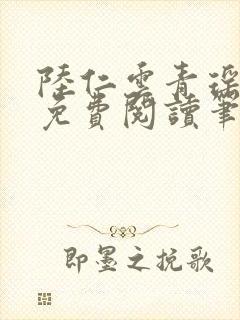 陸仁雲青瑶
免費閱讀筆
即墨之挽歌